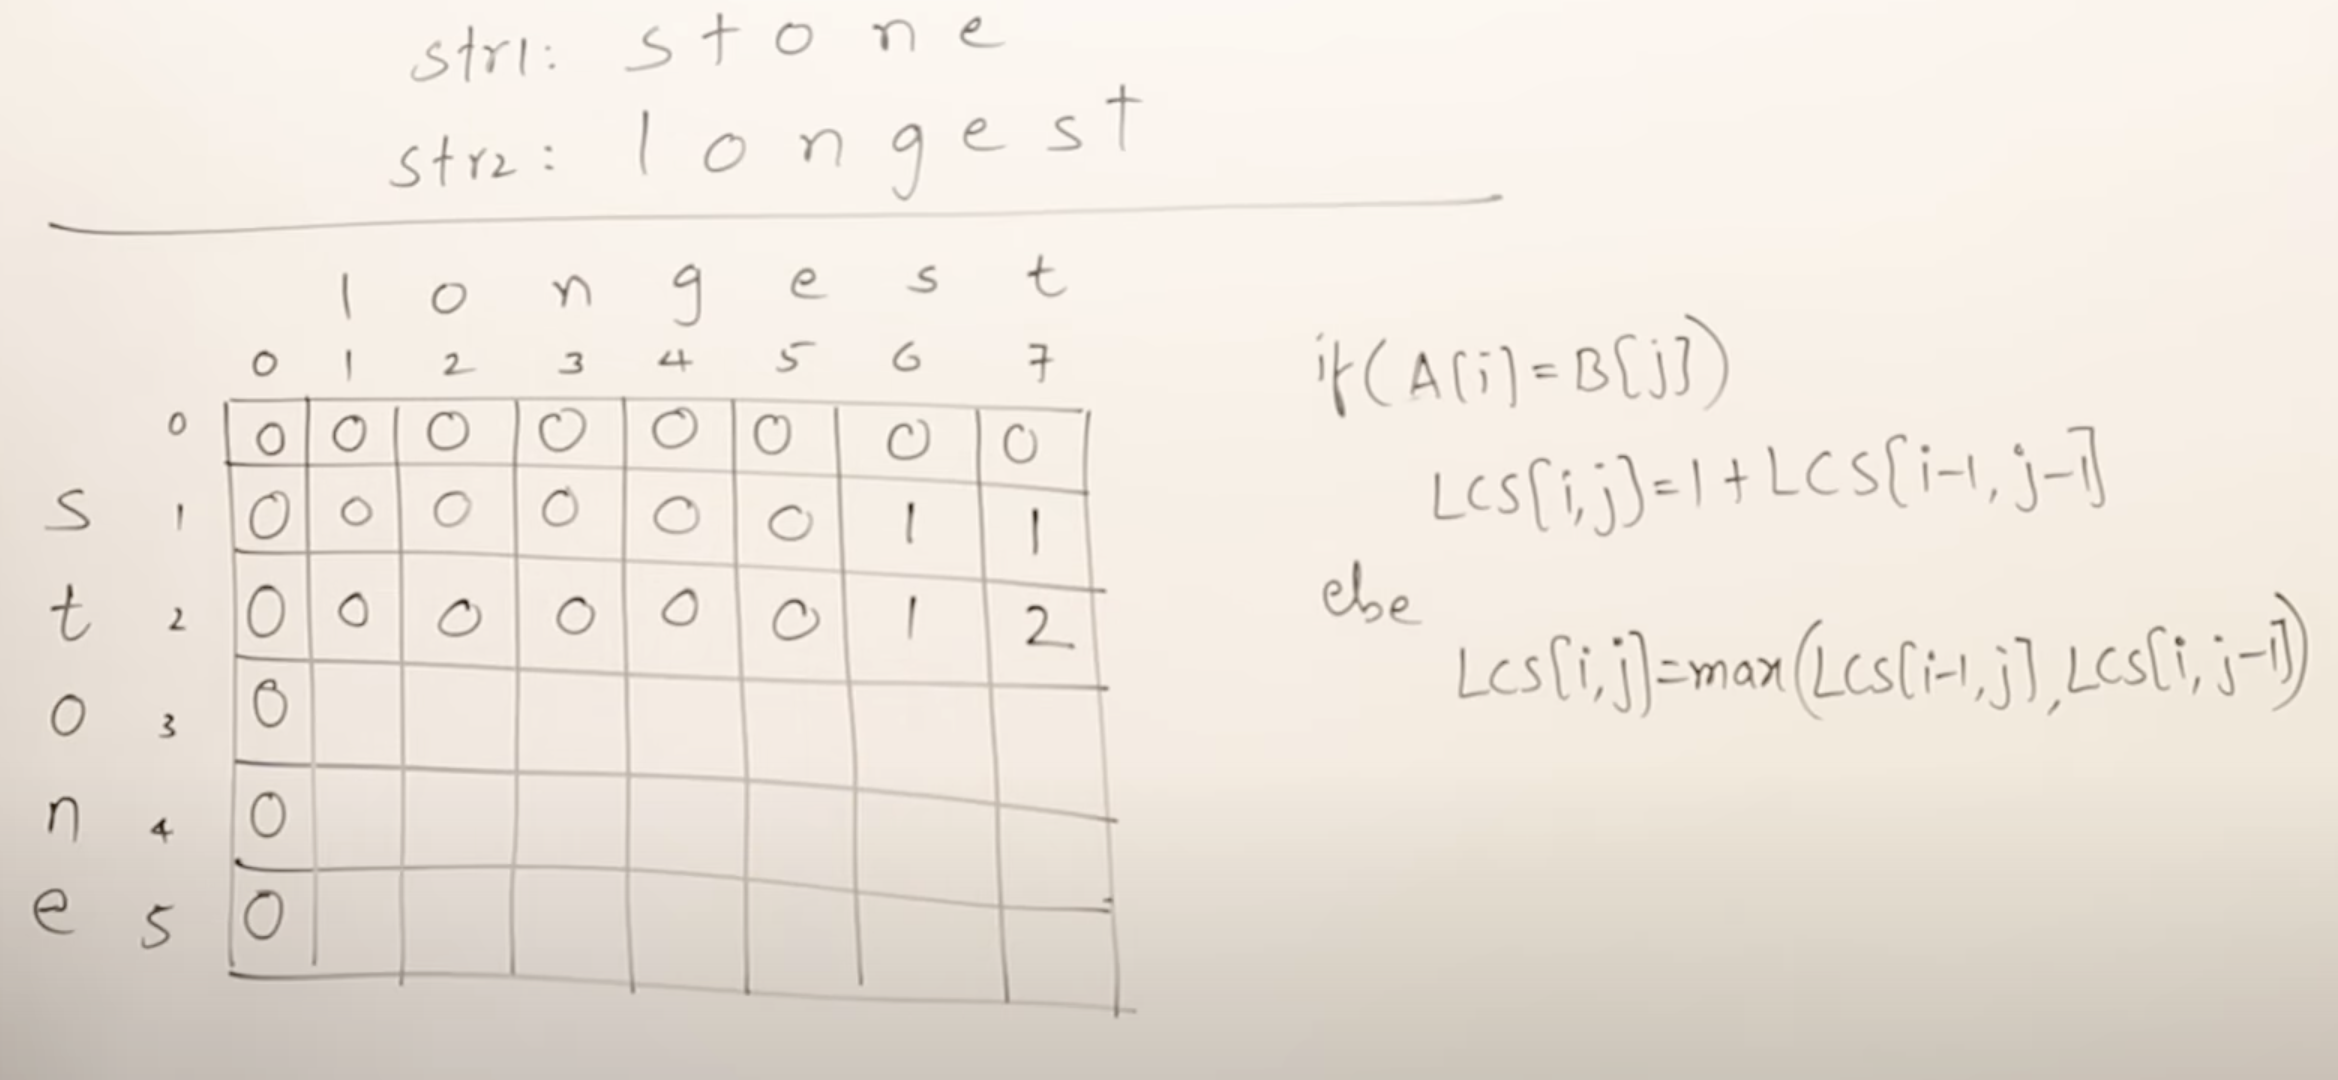 str1: s t o n e
str2: l o n g e s t
l o n g e s t
0 1 2 3 4 5 6 7
0 0 0 0 0 0 0 0 0
s 1 0 0 0 0 0 0 1 1
t 2 0 0 0 0 0 0 1 2
o 3 0
n 4 0
e 5 0
if(A[i]=B[j])
LCS[i,j]=1+LCS[i-1,j-1]
else
LCS[i,j]=max(LCS[i-1,j],LCS[i,j-1])